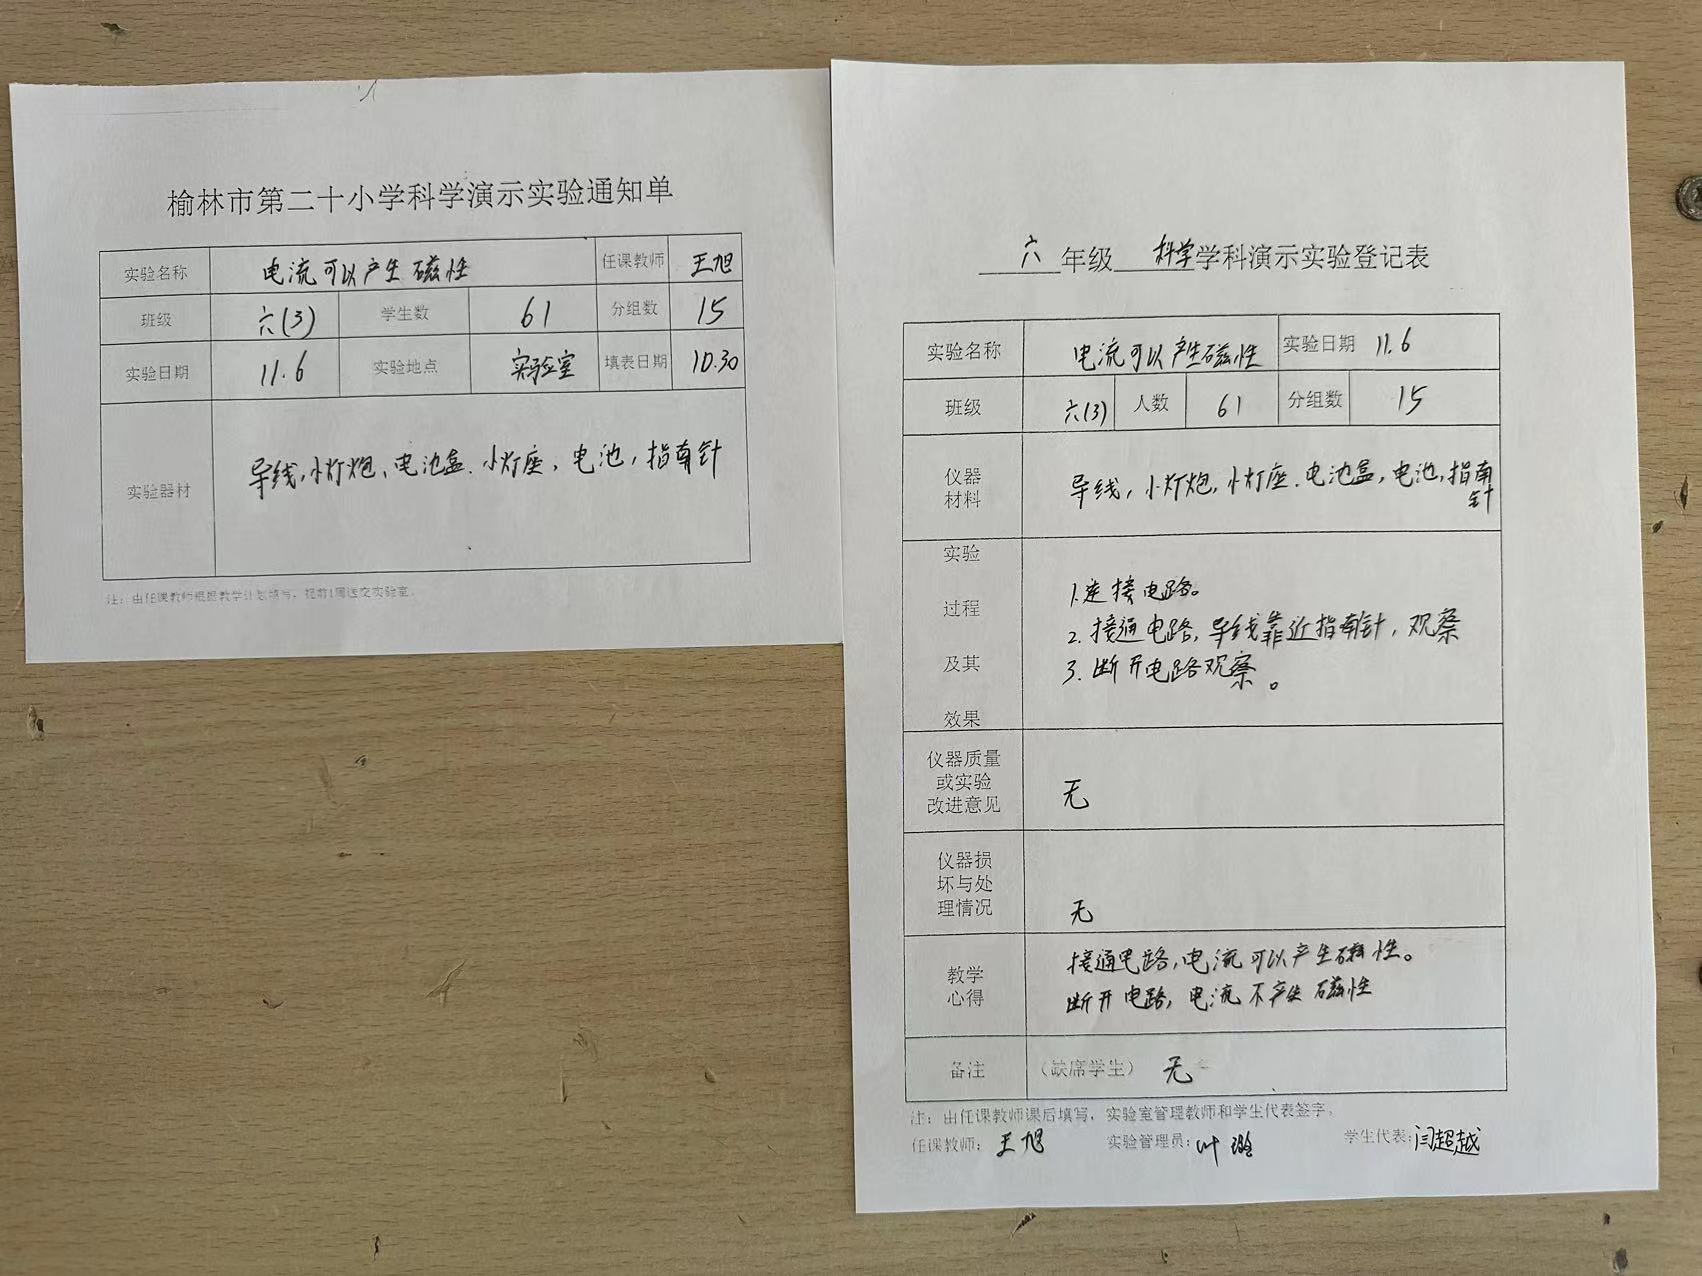 榆林市第二十小学科学演示实验通知单
实验名称 电流可以产生磁性 任课教师 王旭
班级 六(3) 学生数 61 分组数 15
实验日期 11.6 实验地点 实验室 填表日期 10.30
实验器材 导线,小灯炮、电池盒、小灯座,电池,指南针
注：由任课教师根据教学计划填写，提前1周送交实验室。
六 年级 科学 学科演示实验登记表
实验名称 电流可以产生磁性 实验日期 11.6
班级 六(3) 人数 61 分组数 15
仪器
材料
导线,小灯炮,小灯座、电池盒,电池,指南
针
实验
过程
及其
效果
1.连接电路。
2.接通电路,导线靠近指南针,观察
3.断开电路观察。
仪器质量
或实验
改进意见
无
仪器损
坏与处
理情况
无
教学
心得
接通电路,电流可以产生磁性。
断开电路,电流不产生磁性
备注 (缺席学生) 无
注：由任课教师课后填写，实验室管理教师和学生代表签字。
任课教师：王旭 实验管理员：叶璐 学生代表：闫超越